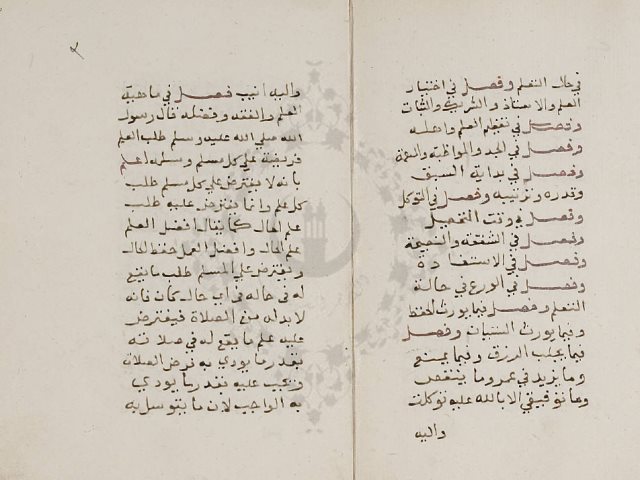 في حال التعلم وفصل في اختيار
العلم والاستاذ والشريك والثبات
وفصل في تعظيم العلم واهله
وفصل في الجد والمواظبة والهمة
وفصل في بداية السبق
وقدره وترتيبه وفصل في التوكل
وفصل في وقت التحصيل
وفصل في الشفقة والنصيحة
وفصل في الاستفادة
وفصل في الورع في حالة
التعلم وفصل فيما يورث الحفظ
وفيما يورث النسيان وفصل
فيما يجلب الرزق وفيما يمنع
وما يزيد في عمر وما ينقص
وما توفيقي الا بالله عليه توكلت
واليه
واليه انيب فصل في ماهية
العلم والفقه وفضله قال رسول
الله صلي الله عليه وسلم طلب العلم
فريضة علي كل مسلم ومسلمه اعلم
بانه لا يفترض علي كل مسلم طلب
كل علم وانما يفترض عليه طلب
علم الحال كما يقال افضل العلم
علم الحال وافضل العمل حفظ الحال
ويفترض علي المسلم طلب ما يقع
له في حاله في اي حال كان فانه
لا بد له من الصلاة فيفترض
عليه علم ما يقع له في صلاته
بقدر ما يودي به فرض الصلاة
ويجب عليه بقدر ما يودي
به الواجب لان ما يتوسل به